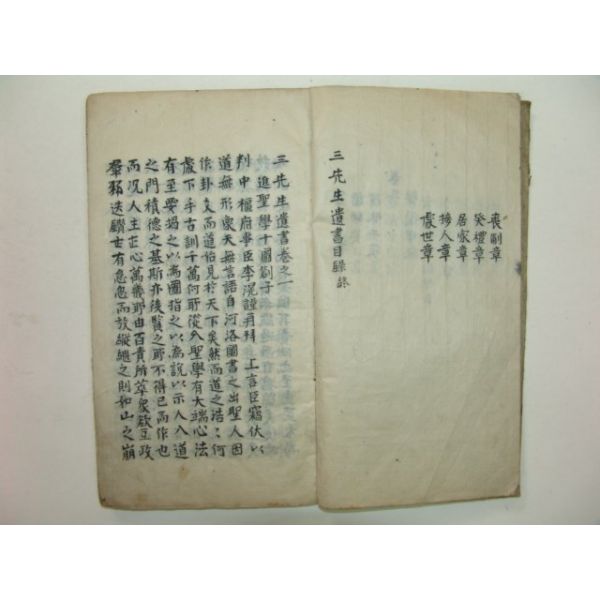 喪制章
祭禮章
居家章
接人章
處世章
三先生遺書目錄終
三先生遺書卷之一
進聖學十圖劄子
判中樞府事臣李滉謹再拜 上言臣竊伏以
道無形象天無言語自河洛圖書之出聖人因
作卦爻而道始見於天下矣然而道之浩〻何
處下手古訓千萬何所從入聖學有大端心法
有至要揭之以爲圖指之以爲說以示人入道
之門積德之基斯亦後賢之所不得已而作也
而况人主正心萬幾所由百責所萃衆欲互攻
羣邪迭鑽世有怠忽而放縱繼之則如山之崩